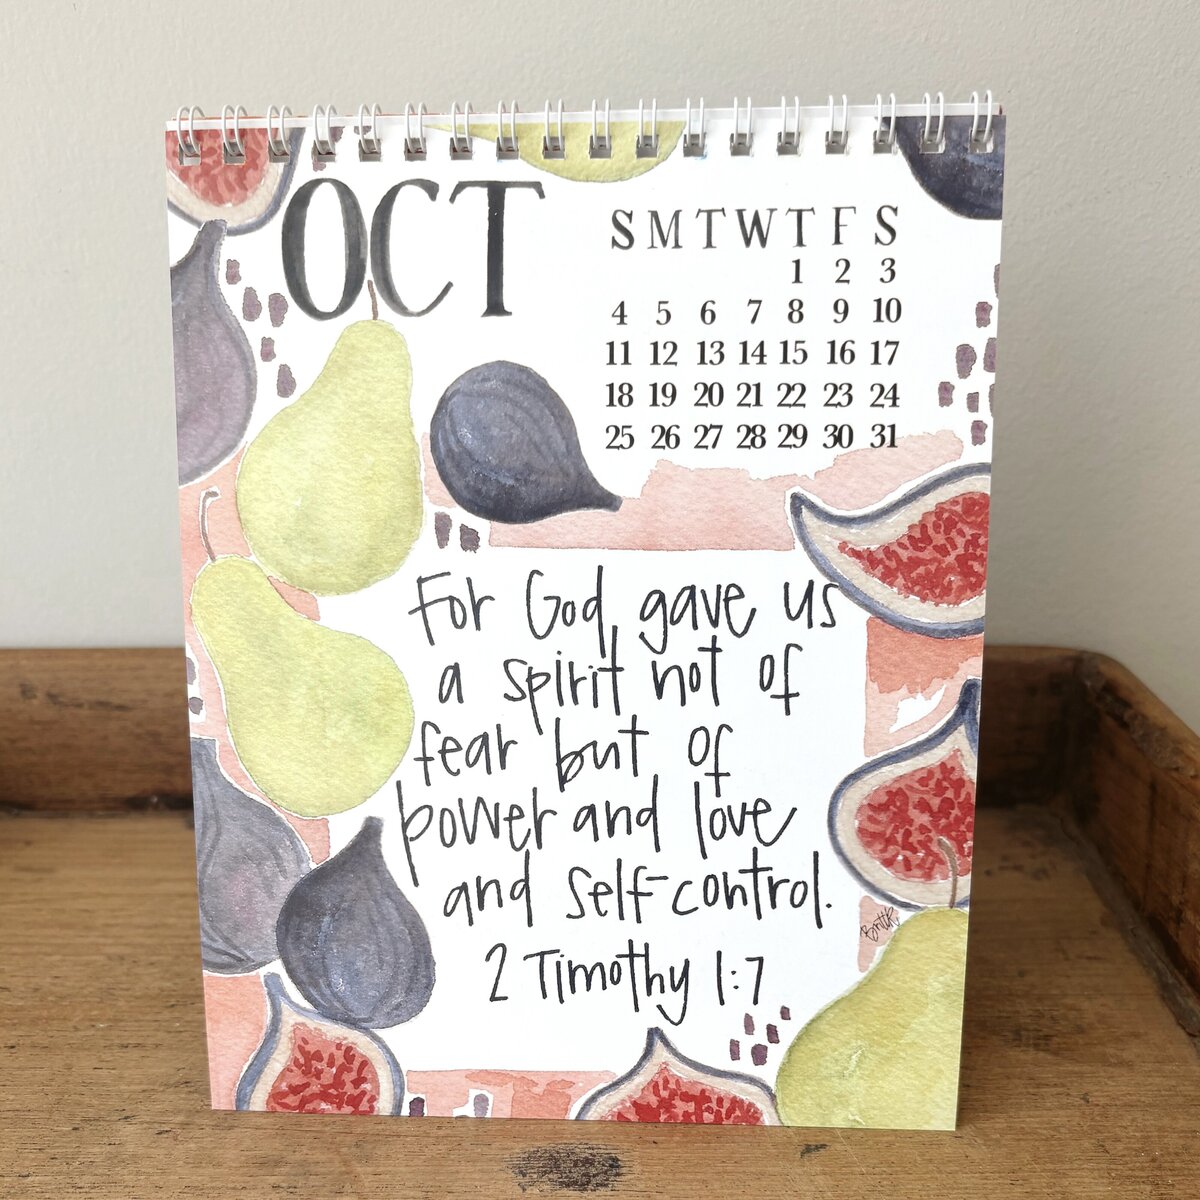 OCT
S M T W T F S
1 2 3
4 5 6 7 8 9 10
11 12 13 14 15 16 17
18 19 20 21 22 23 24
25 26 27 28 29 30 31
For God gave us
a spirit not of
fear but of
power and love
and self-control.
2 Timothy 1:7